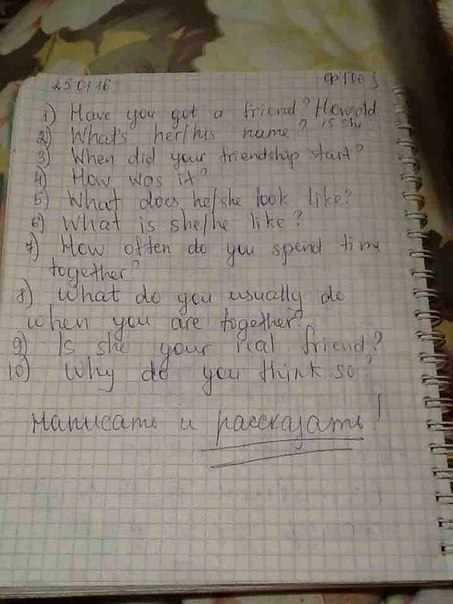 25 01 16
1) Have you got a friend? How old
2) What's her/his name? is she
3) When did your friendship start?
4) How was it?
5) What does he/she look like?
6) What is she/he like?
7) How often do you spend time
together?
8) What do you usually do
when you are together?
9) Is she your real friend?
10) Why do you think so?
Написать и рассказать!